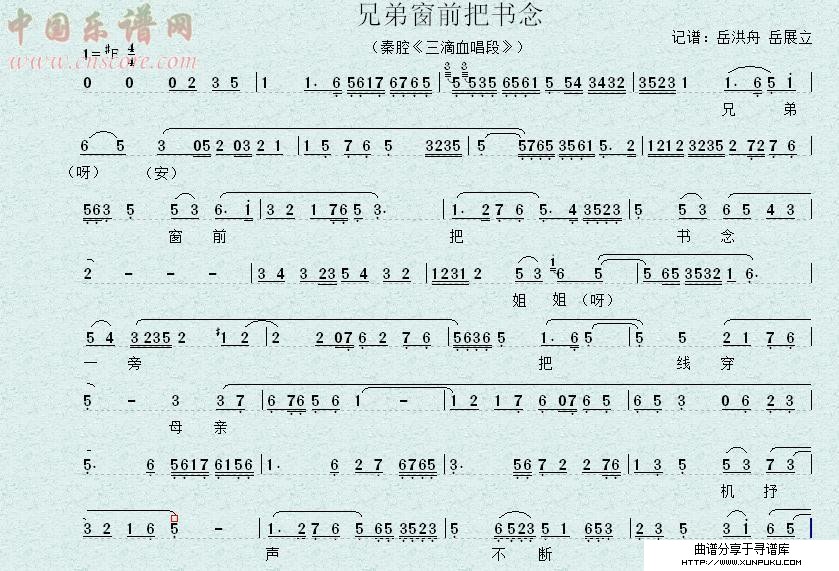 中国乐谱网
www.cnscore.com
兄弟窗前把书念
（秦腔《三滴血唱段》）
记谱：岳洪舟 岳展立
1=#F 4/4
0 0 0 2 3 5 | 1 1· 6 5617 6765 | 3 3 5 535 6561 5 54 3432 | 3523 1 1· 6 5 i |
兄 弟
6 5 3 05 2 03 2 1 | 1 5 7 6 5 3235 | 5 5765 3561 5· 2 | 1212 3235 2 72 7 6 |
（呀） （安）
563 5 5 3 6· i | 3 2 1 76 5 3· | 1· 2 7 6 5· 4 3523 | 5 5 3 6 5 4 3 |
窗 前 把 书 念
2 - - - | 3 4 3 23 5 4 3 2 | 1231 2 5 3 i 6 5 | 5 65 3532 1 6· |
姐 姐 （呀）
5 4 3 235 2 #1 2 | 2 2 07 6 2 7 6 | 5636 5 1· 6 5 | 5 5 2 1 7 6 |
一 旁 把 线 穿
5 - 3 3 7 | 6 76 5 6 1 - | 1 2 1 7 6 07 6 5 | 6 5 3 0 6 2 |
母 亲
5· 6 5617 6156 | 1· 6 2 7 6765 | 3· 56 7 6 2 276 | 1 3 5 5 3 7 3 |
机 抒
3 2 1 6 5 - | 1· 2 7 6 5 65 3523 | 5 6523 5 1 653 | 2 3 5 3 i 6 5 |
声 不 断
曲谱分享于寻谱库
HTTP://WWW.XUNPUKU.COM